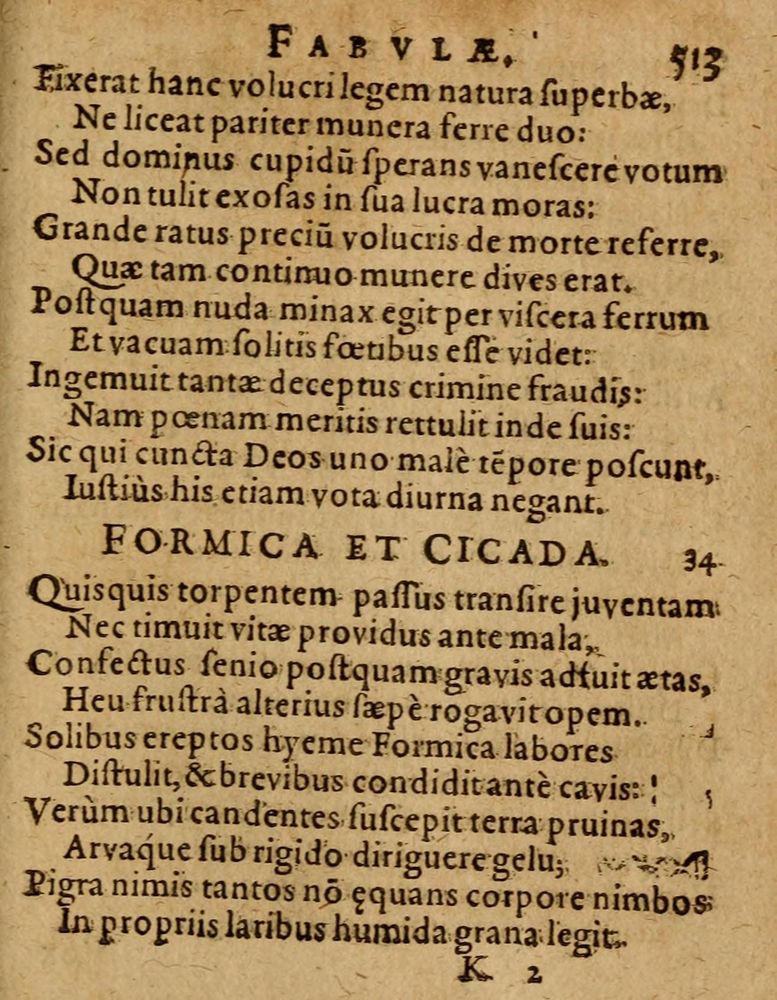 FABVLÆ. 513
Fixerat hanc volucri legem natura ſuperbæ,
Ne liceat pariter munera ferre duo:
Sed dominus cupidũ ſperans vaneſcere votum
Non tulit exoſas in ſua lucra moras:
Grande ratus preciũ volucris de morte referre,
Quæ tam continuo munere dives erat.
Poſtquam nuda minax egit per viſcera ferrum
Et vacuam ſolitis fœtibus eſſe videt:
Ingemuit tantæ deceptus crimine fraudis:
Nam pœnam meritis rettulit inde ſuis:
Sic qui cuncta Deos uno malè tẽpore poſcunt,
Iuſtiùs his etiam vota diurna negant.
FORMICA ET CICADA. 34
Quisquis torpentem paſſus tranſire juventam
Nec timuit vitæ providus ante mala,
Confectus ſenio poſtquam gravis adfuit ætas,
Heu fruſtrà alterius ſæpè rogavit opem.
Solibus ereptos hyeme Formica labores
Diſtulit, & brevibus condidit antè cavis:
Verùm ubi candentes ſuſcepit terra pruinas,
Arvaq́ue ſub rigido diriguere gelu;
Pigra nimis tantos nō ęquans corpore nimbos
In propriis laribus humida grana legit.
K 2